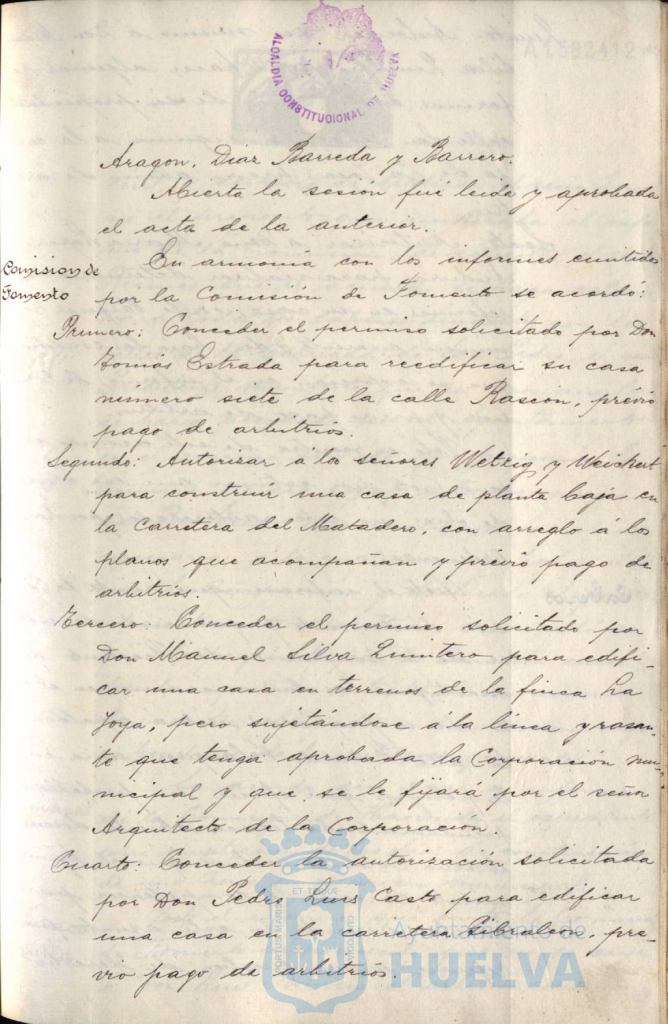 ALCALDIA CONSTITUCIONAL DE HUELVA
A1582412
Aragon, Diaz Barreda y Barrero.
Abierta la sesión fué leida y aprobada
el acta de la anterior.
Comision de
Fomento
En armonía con los informes emitidos
por la Comisión de Fomento se acordó:
Primero: Conceder el permiso solicitado por Don
Tomás Estrada para reedificar su casa
número siete de la calle Rascon, prévio
pago de arbitrios.
Segundo: Autorizar á los señores Wetzig y Weickert
para construir una casa de planta baja en
la Carretera del Matadero, con arreglo á los
planos que acompañan y prévio pago de
arbitrios.
Tercero: Conceder el permiso solicitado por
Don Manuel Silva Quintero para edifi-
car una casa en terrenos de la finca La
Joya, pero sujetándose á la línea y rasan-
te que tenga aprobada la Corporación mu-
nicipal y que se le fijará por el señor
Arquitecto de la Corporación.
Cuarto: Conceder la autorización solicitada
por Don Pedro Luis Casto para edificar
una casa en la carretera Gibraleon, pre-
vio pago de arbitrios.
Ayuntamiento de
HUELVA